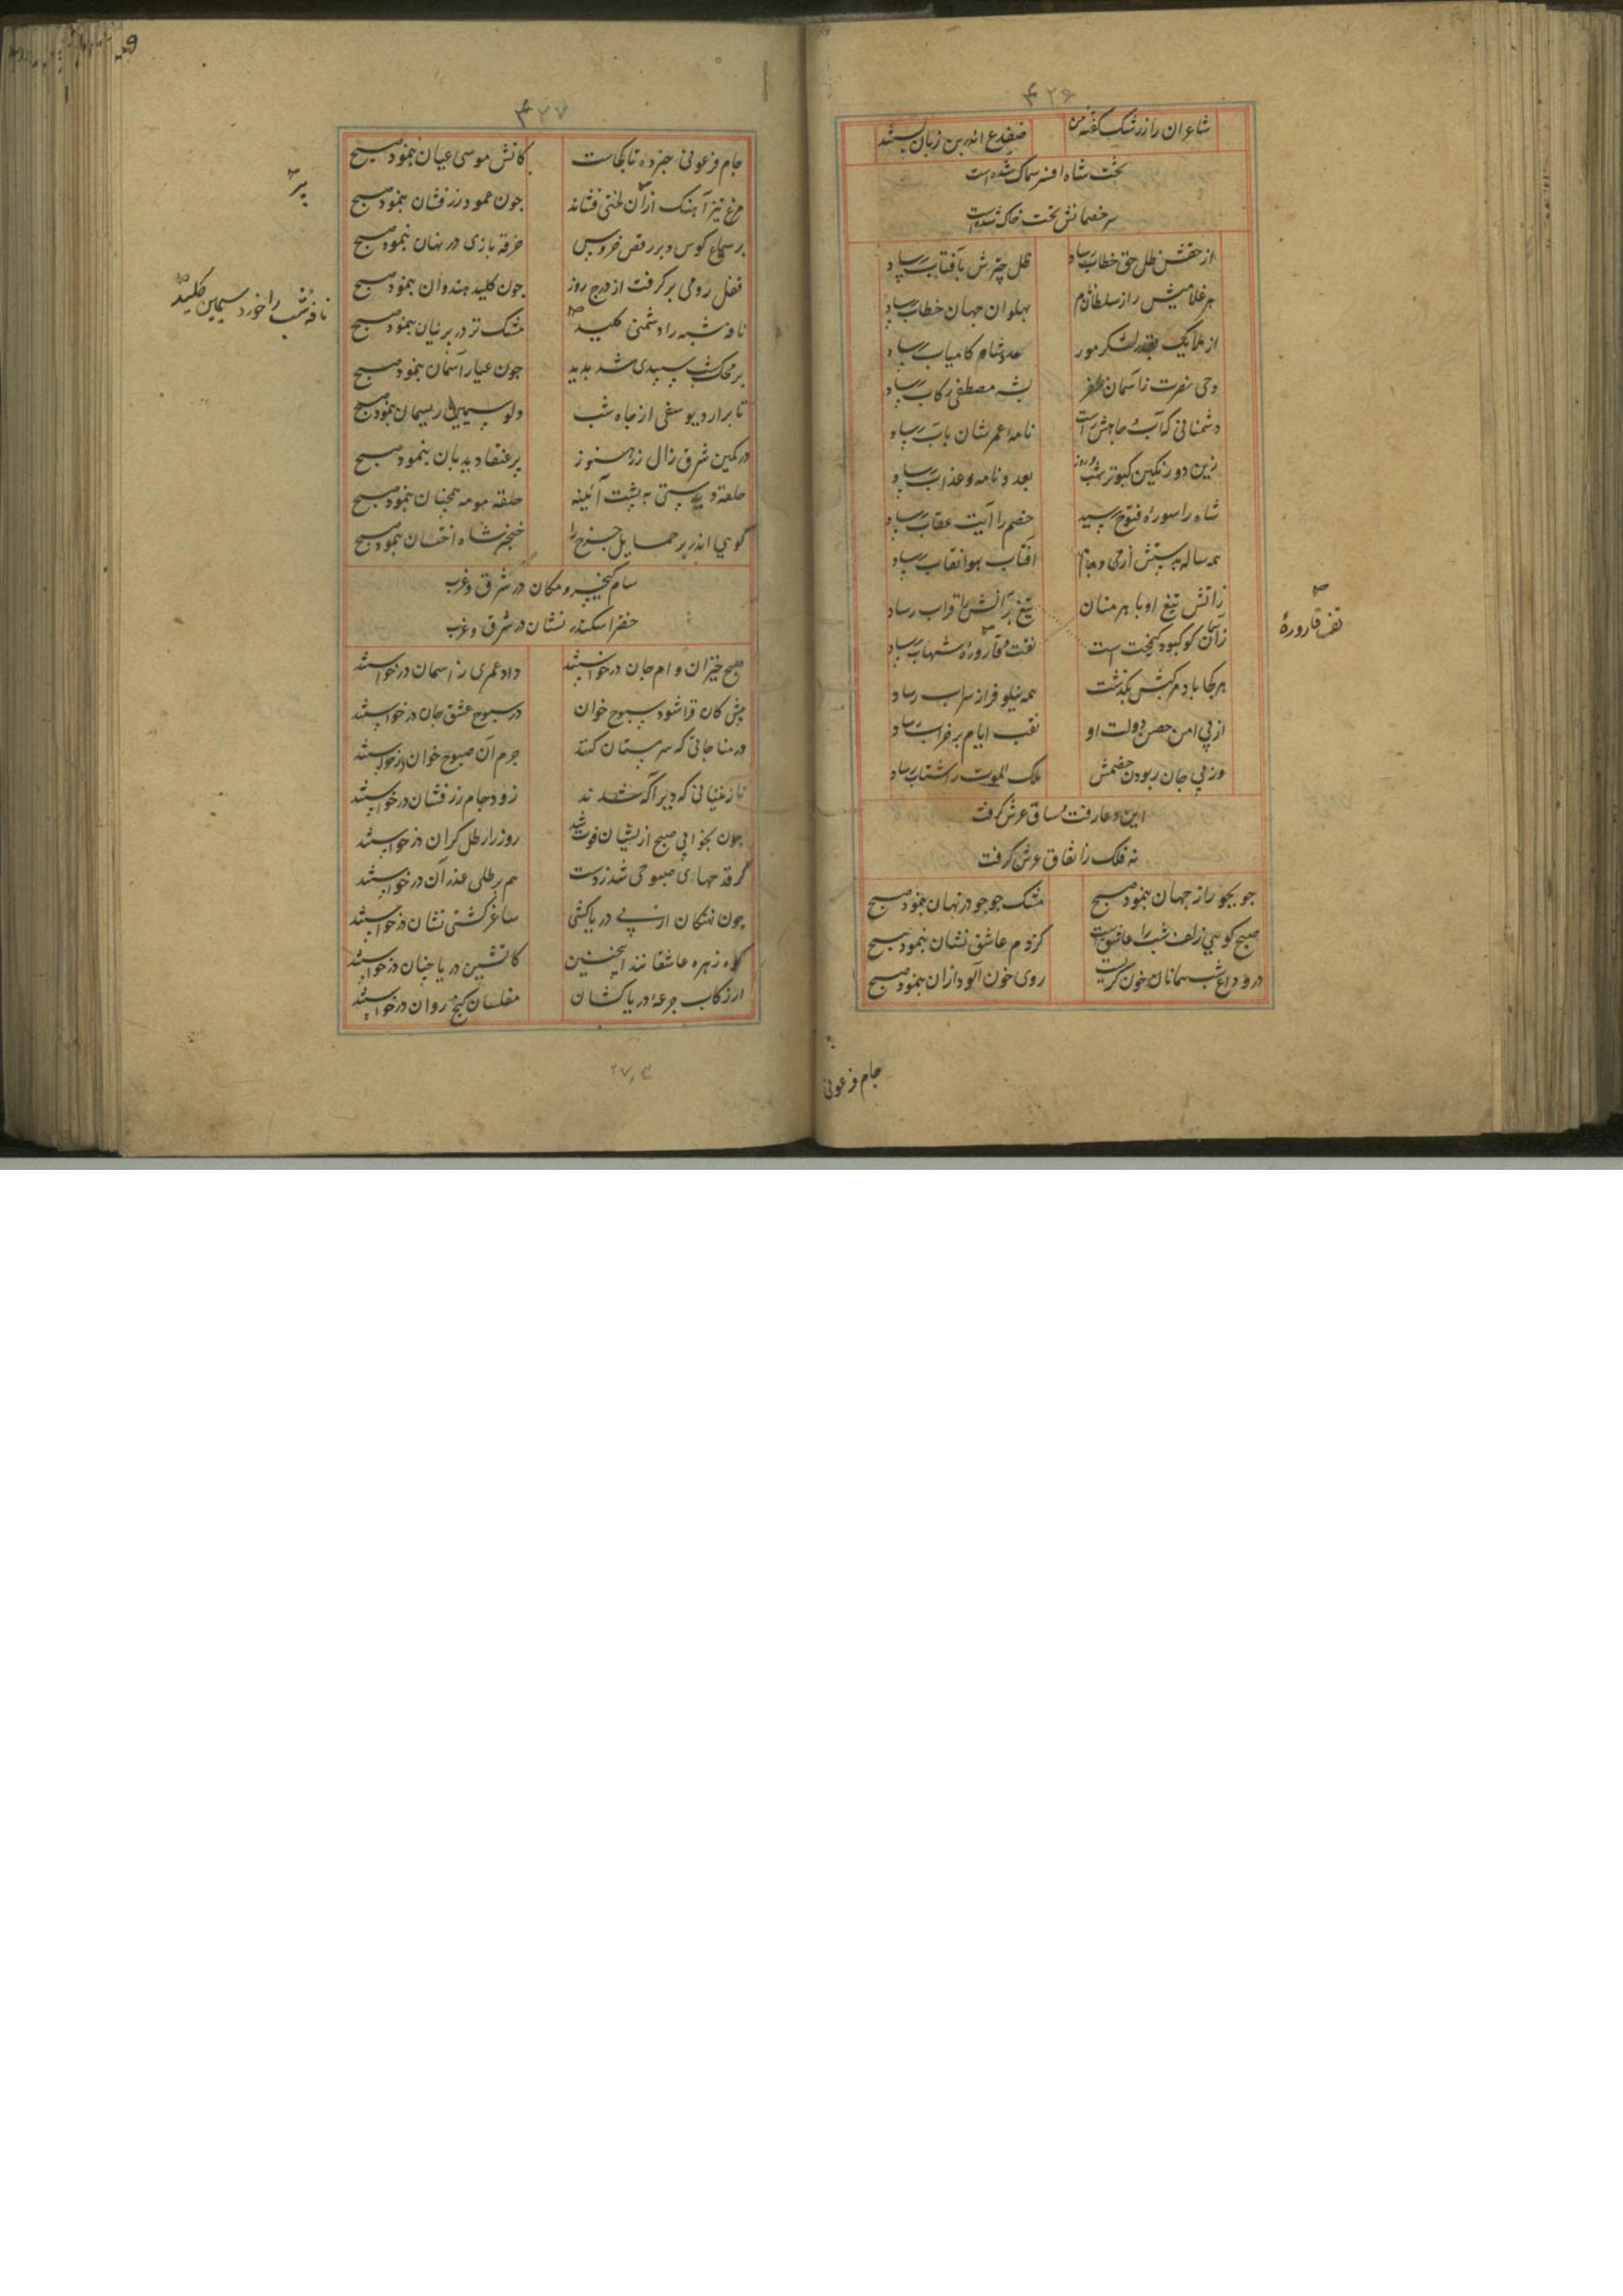 ۴۲۶
شاعران را ز رشک گفته من ضفدع اندر بن زبان بستند
تخت شاه افسر سماک شده است
سر خصمانش تخت خاک شده است
از حقش ظل حق خطاب رساد ظل چترش بآفتاب رساد
هر غلامیش را ز سلطانان پهلوان جهان خطاب رساد
از ملایک بقدر لشکر مور کامیاب رساد
وحی نصرت ز آسمان ظفر بشه مصطفی رکاب رساد
دشمنانی که آب جاهش راست نامهٔ عمرشان بآب رساد
زین دو رنگین کبوتر شب و روز بعد و نامه و عذاب رساد
شاه را سورهٔ فتوح رسید خصم را آیت عقاب رساد
همه ساله بدستش از می و جام آفتاب هوا نقاب رساد
ز آتش تیغ او باهرمنان تیغ بر آتش را ثواب رساد
زآسمان کو کبود کیمخت است نفت و قارورهٔ شهاب رساد
هر کجا باد مرکبش بگذشت همه نیلوفر از سراب رساد
از پی امن حصن دولت او نقب ایام بر خراب رساد
وز پی جان ربودن خصمش ملک الموت را شتاب رساد
این دعا رفت و ساق عرش گرفت
نه فلک را نفاق عرش گرفت
جو بجو راز جهان بنمود صبح مشک جو جو در نهان بنمود صبح
صبح کوهی زلف شب را عاشق است کز دم عاشق نشان بنمود صبح
در وداع شب همانا خون گریست روی خون آلود از آن بنمود صبح
نفت قارورهٔ
جام فرعونی
۴۲۷
جام فرعونی خبر ده تا کجاست کاتش موسی عیان بنمود صبح
مرغ تیز آهنگ از آن لختی فشاند چون عمود زرفشان بنمود صبح
بر سماع کوس و بر رقص خروس خرقه بازی در نهان بنمود صبح
قفل رومی برگرفت از درج روز چون کلید هندوان بنمود صبح
نافه شب را دشمنی کلید مشک تر در پرنیان بنمود صبح
بر محک شب سپیدی شد پدید چون عیار آسمان بنمود صبح
تا برآرد یوسفی از چاه شب دلو سیمین ریسمان بنمود صبح
در کمین شرق زال زر هنوز پر عنقا دیدبان بنمود صبح
حلقه دیدستی به پشت آئینه حلقه مه همچنان بنمود صبح
گویی اندر بر حمایل چرخ را خنجر شاه اخستان بنمود صبح
سام کیخسرو مکان در شرق و غرب
خضر اسکندر نشان در شرق و غرب
صبح خیزان وام جان درخواستند داد عمری ز آسمان درخواستند
پیش کان قرا شود سبوح خوان در صبوح عشق جان درخواستند
در مناجاتی که سرمستان کنند جرم آن صبوح خوان درخواستند
نازنینانی که دیر آگه شدند زود جام زرفشان درخواستند
چون بخوابی صبح ازیشان فوت شد روز را رطل گران درخواستند
گرفته جهای صبوحی شد ز دست هم برطلی عذر آن درخواستند
چون نهنگان از پی دریاکشی ساغر کشتی نشان درخواستند
گاه زهره عاشقانند اینچنین کاتشین دریا چنان درخواستند
از رکاب جرعهٔ دریاکشان مفلسان گنج روان درخواستند
پر
نافه شب را خورد سیمین کلید